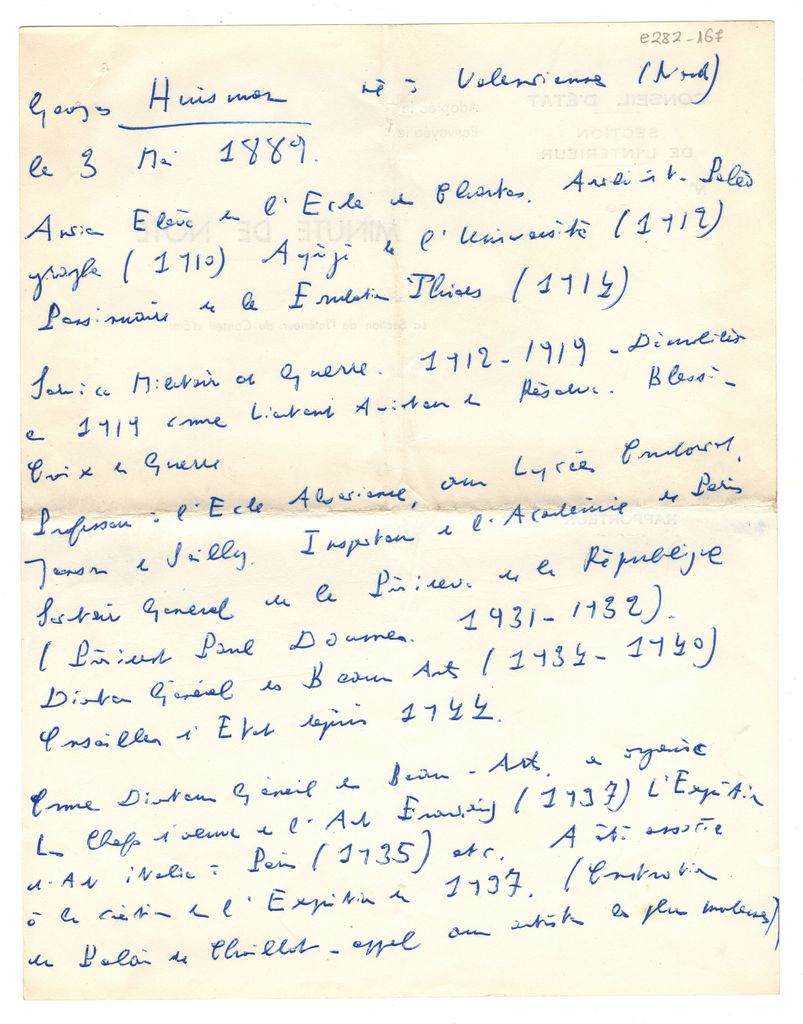 e282-167
Georges Huisman né à Valenciennes (Nord)
le 3 Mai 1889.
Ancien Elève de l'Ecole des Chartes. Archiviste-Paléo
graphe (1910) Agrégé de l'Université (1912)
Pensionnaire de la Fondation Thiers (1914)
Service Militaire et Guerre. 1912-1919 - Démobilisé
en 1919 comme Lieutenant Aviateur de Réserve. Blessé -
Croix de Guerre
Professeur à l'Ecole Alsacienne, aux Lycées Condorcet,
Janson de Sailly. Inspecteur de l'Académie de Paris
Secrétaire Général de la Présidence de la République
(Président Paul Doumer. 1931-1932).
Directeur Général des Beaux Arts (1934-1940)
Conseiller d'Etat depuis 1944.
Comme Directeur Général des Beaux-Arts, a organisé
Les Chefs d'oeuvre de l'Art Français (1937) L'Exposition
d'Art italien à Paris (1935) etc. A été associé
à la création de l'Exposition de 1937. (Construction
du Palais de Chaillot - appel aux artistes les plus modernes)
CONSEIL D'ÉTAT
SECTION
DE L'INTÉRIEUR
MINUTE DE NOTE
La Section de l'Intérieur du Conseil d'État
RAPPORTEUR